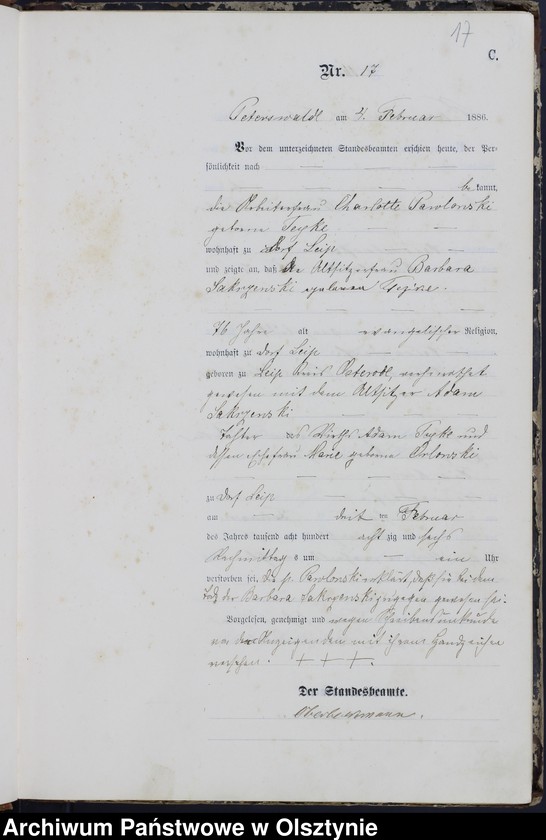 17
C.
Nr. 17
Peterswald am 4. Februar 1886.
Vor dem unterzeichneten Standesbeamten erschien heute, der Per-
sönlichkeit nach
be kannt,
die Arbeiterfrau Charlotte Pawlowski
geborne Teyke
wohnhaft zu Dorf Leip
und zeigte an, daß die Altsitzerfrau Barbara
Sakrzenski geborne Teyke.
76 Jahre alt evangelischer Religion,
wohnhaft zu Dorf Leip
geboren zu Leip Kreis Osterode, verheirathet
gewesen mit dem Altsitzer Adam
Sakrzenski
Tochter des Wirths Adam Teyke und
dessen Ehefrau Marie geborne Orlowski
zu Dorf Leip
am drit ten Februar
des Jahres tausend acht hundert acht zig und sechs
Nachmittag s um ein Uhr
verstorben sei, die p. Pawlowski erklärt, daß sie bei dem
Tod der Barbara Sakrzenski zugegen gewesen sei.
Vorgelesen, genehmigt und wegen Schreibensunkunde
von der Anzeigenden mit ihrem Handzeichen
versehen. + + +.
Der Standesbeamte.
Archiwum Państwowe w Olsztynie
www.genealogiawarchiwach.pl